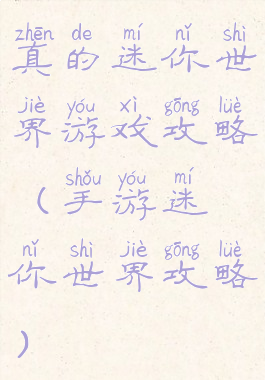 zhēn de mí nǐ shì
真的迷你世
jiè yóu xì gōng lüè
界游戏攻略
shǒu yóu mí
（手游迷
nǐ shì jiè gōng lüè
你世界攻略
）